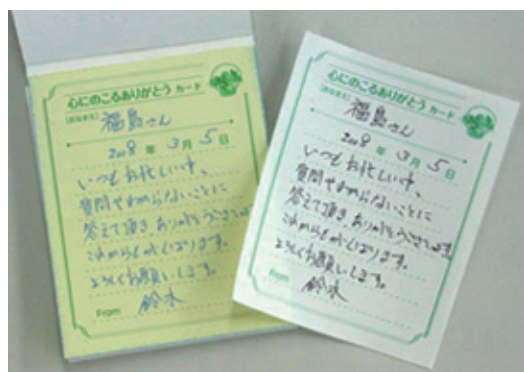 心にのこるありがとう カード
(おなまえ) 福島さん
2008 年 3 月 5 日
いつもお忙しい中、
質問やわからないことに
答えて頂き、ありがとうございます。
これからもがんばります。
よろしくお願いします。
From 鈴木
心にのこるありがとう カード
(おなまえ) 福島さん
2008 年 3 月 5 日
いつもお忙しい中、
質問やわからないことに
答えて頂き、ありがとうございます。
これからもがんばります。
よろしくお願いします。
From 鈴木